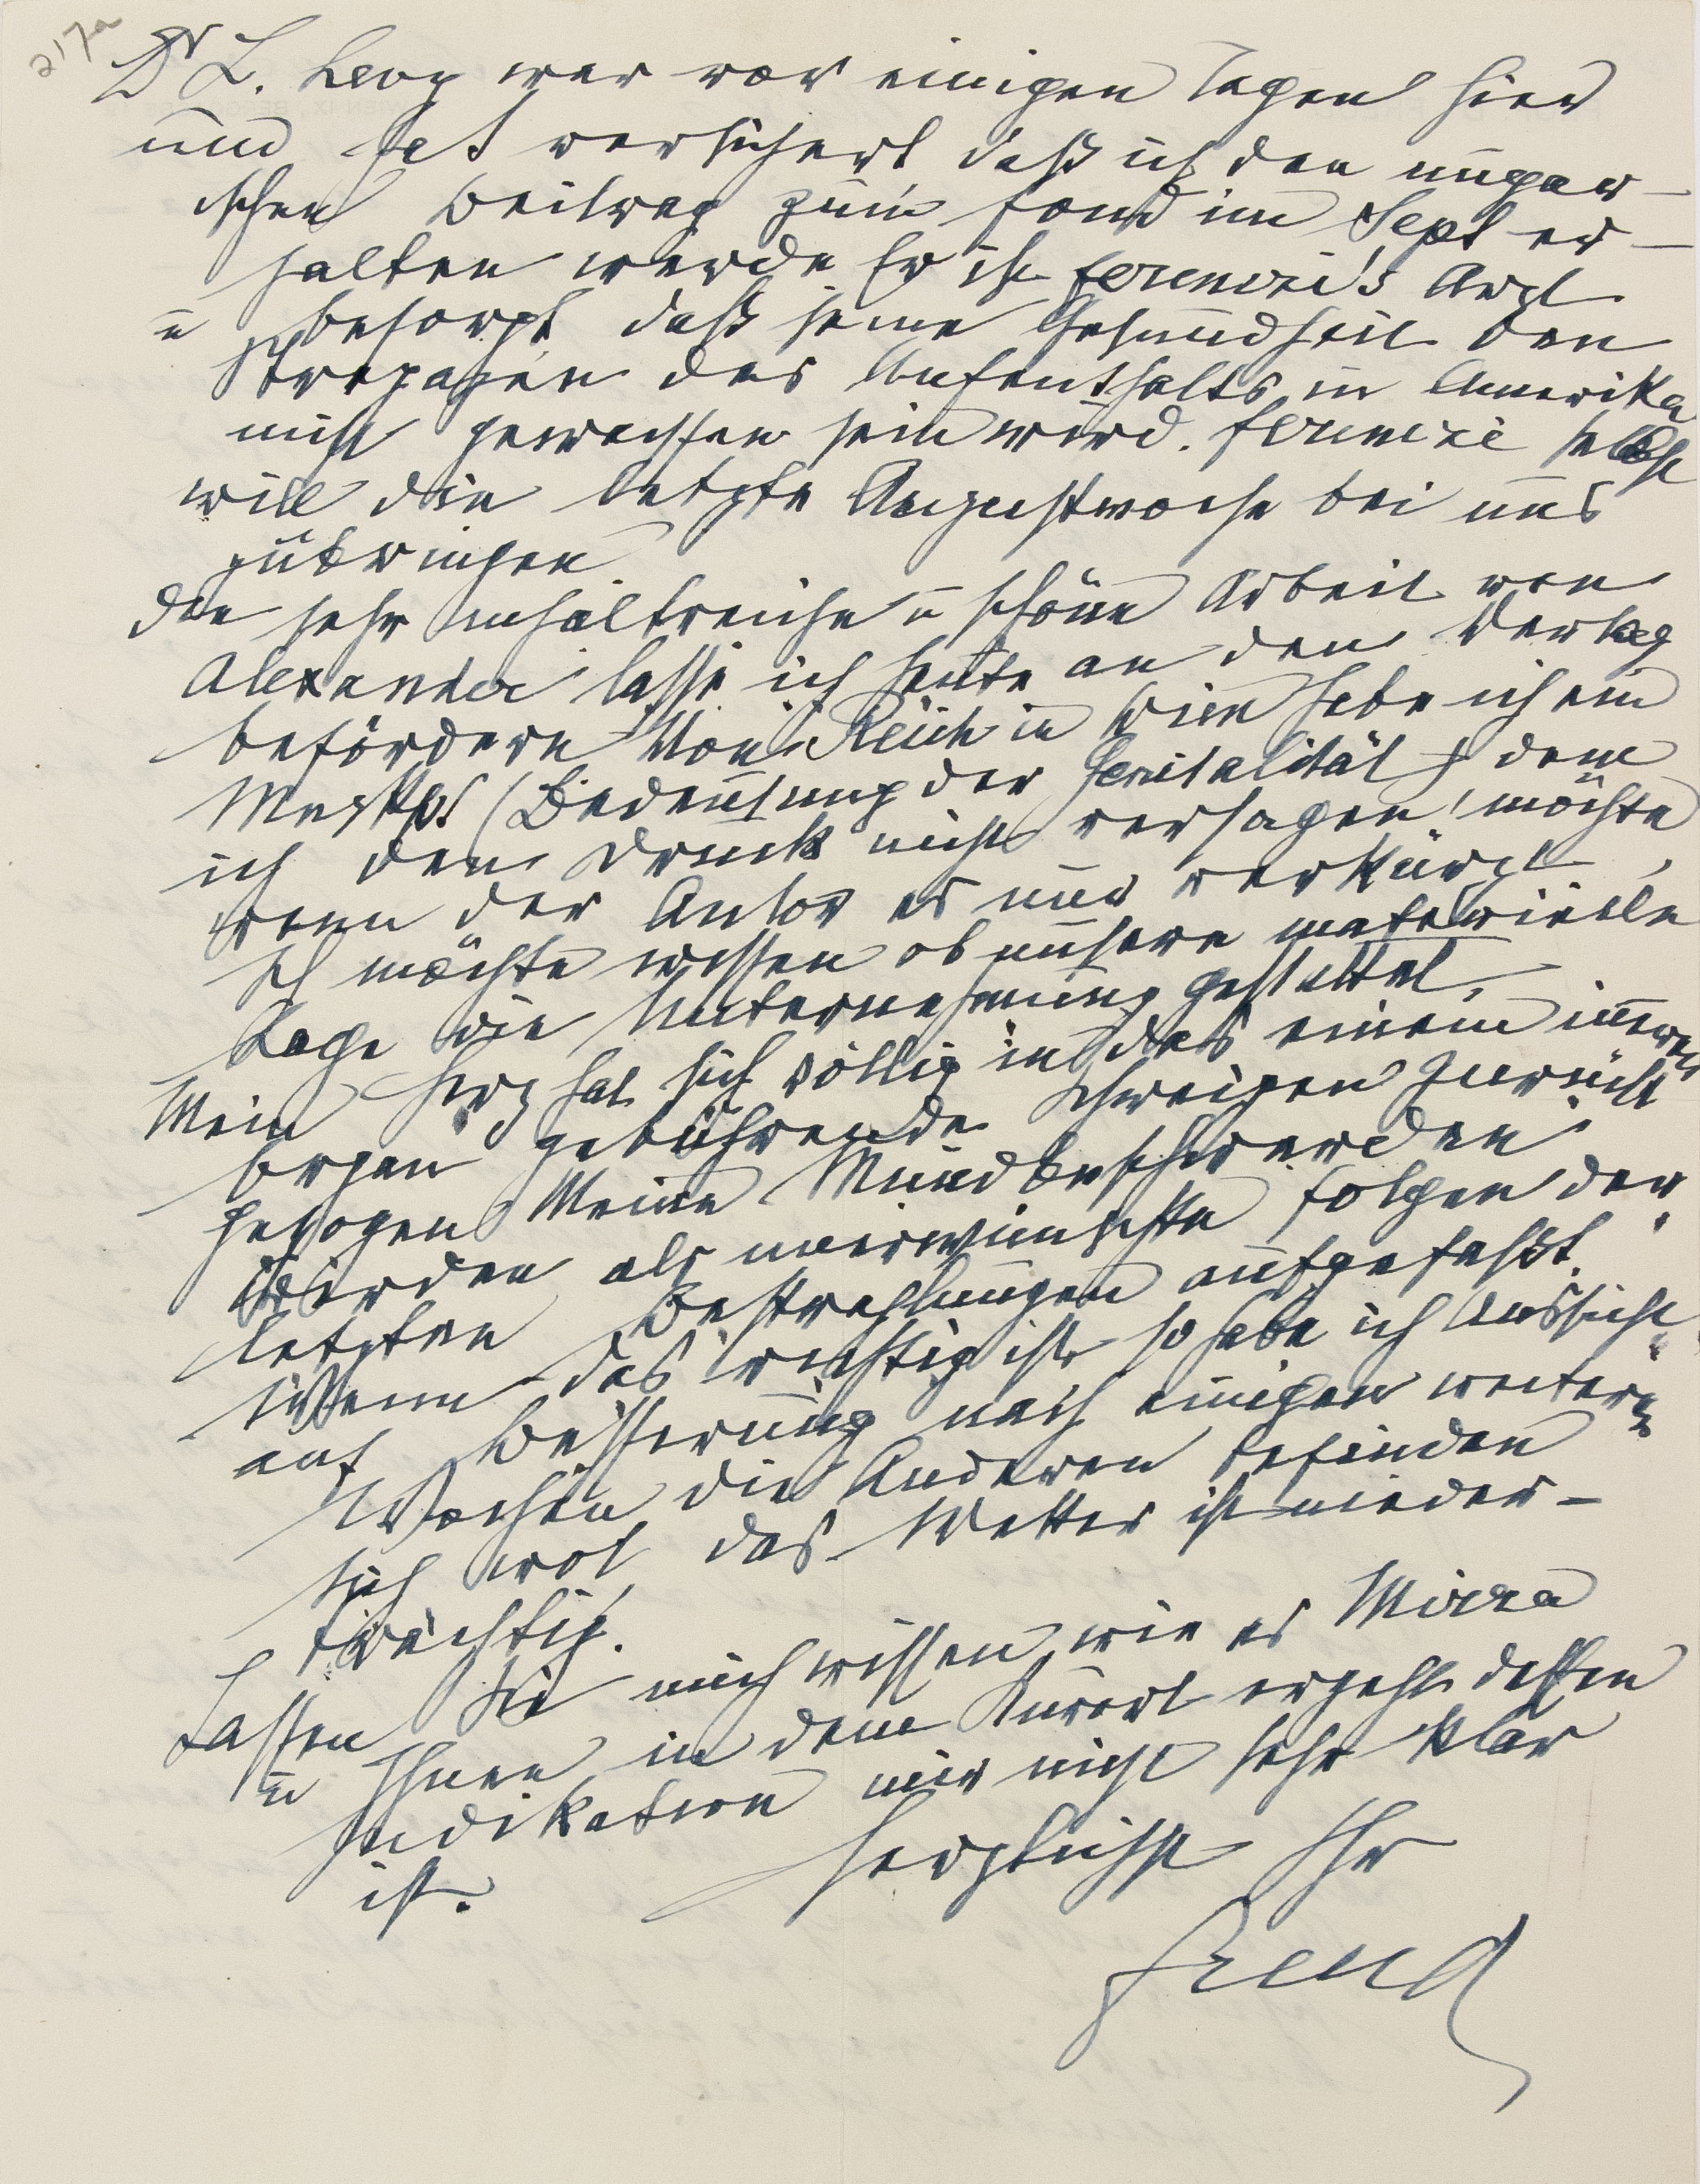 217a
Dr L. Levy war vor einigen Tagen hier
und hat versichert daß ich den ungar-
ischen Beitrag zum Fond im Sept er-
halten werde Er ist Ferenczi's Arzt
u besorgt daß seine Gesundheit den
Strapazen des Aufenthalts in Amerika
nicht gewachsen sein wird. Ferenczi selbst
will die letzte Augustwoche bei uns
zubringen
Die sehr inhaltreiche u schöne Arbeit von
Alexander lasse ich heute an den Verlag
befördern Von Reich in Wien habe ich ein
Mnskpt (Bedeutung der Genitalität) dem
ich den Druck nicht versagen möchte
wenn der Autor es nur verkürzt,
Ich möchte wissen ob unsere materielle
Lage die Unternehmung gestattet,
Mein Herz hat sich völlig in das einem inneren
Organ gebührende Schweigen zurück
gezogen Meine Mundbeschwerden
werden als unerwünschte Folgen der
letzten Bestrahlungen aufgefaßt.
Wenn das richtig ist so habe ich Aussicht
auf Besserung nach einigen weiteren
Wochen die Anderen befinden
sich wol, das Wetter ist nieder-
trächtig.
Lassen Sie mich wissen wie es Mirra
u Ihnen in dem Kurort ergeht dessen
Indikation mir nicht sehr klar
ist.
Herzlichst Ihr
Freud